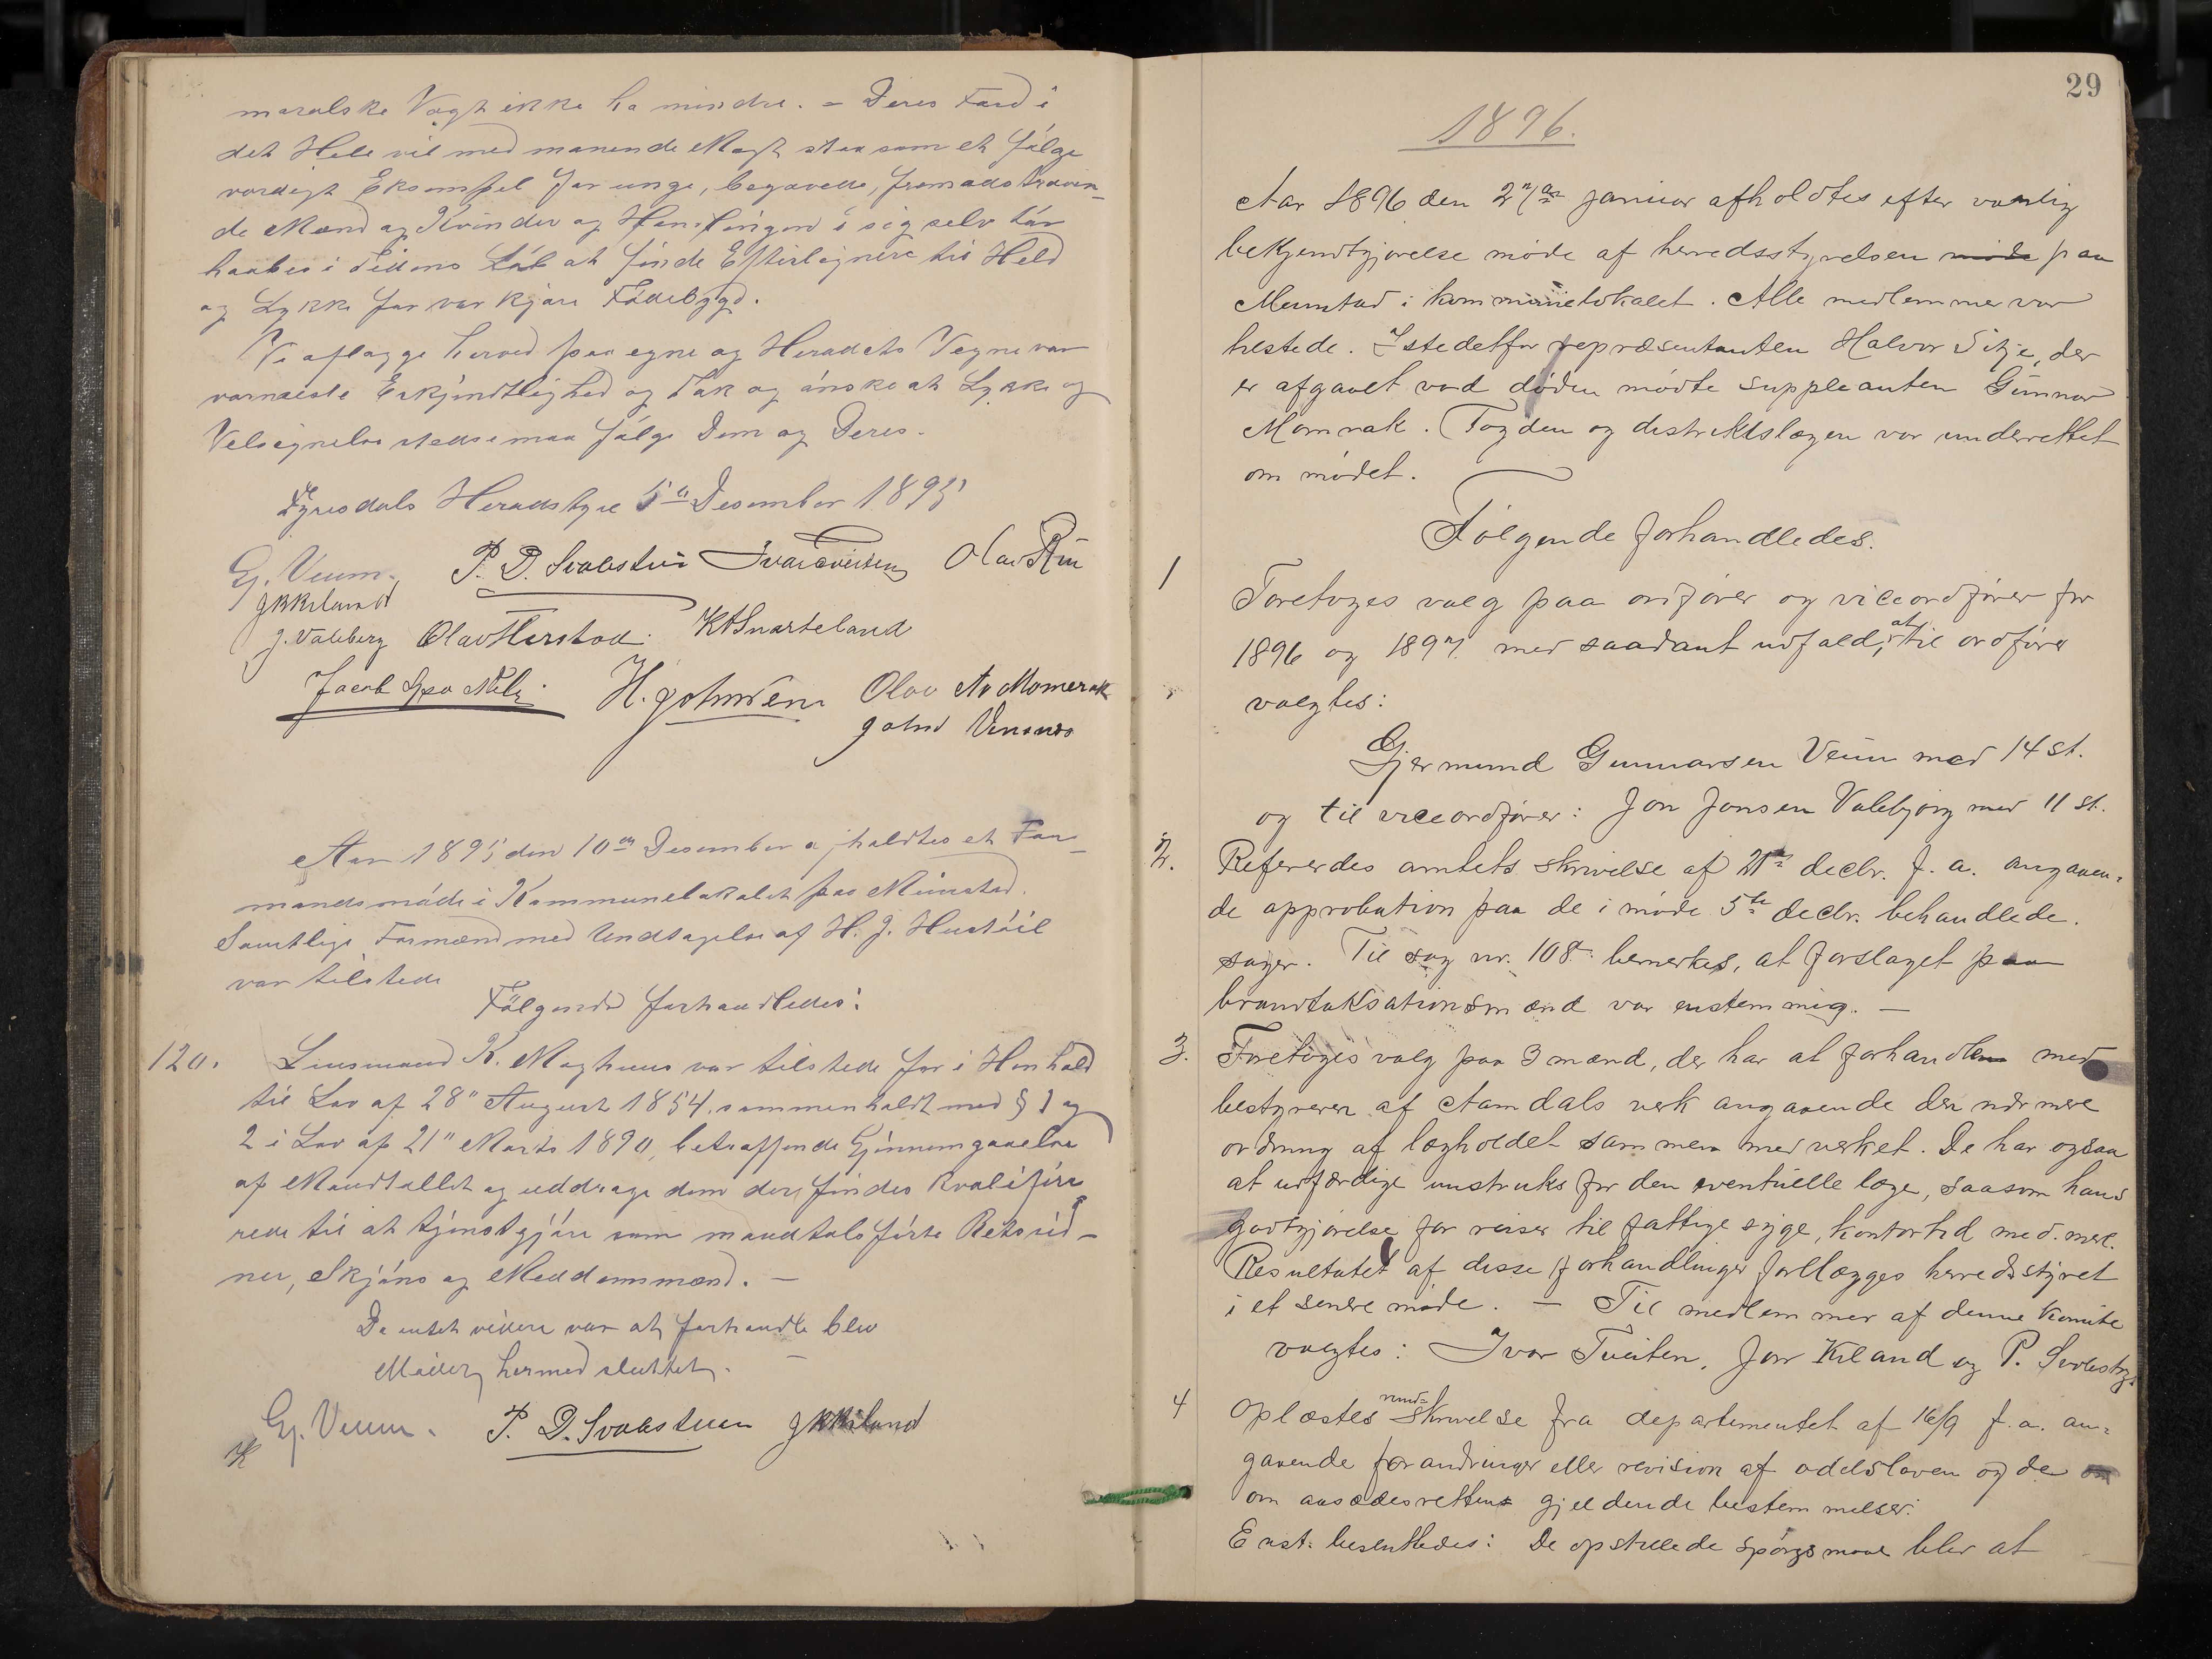 moralske Vægt ikke ha mindre. – Deres Færd i
det Hele vil med manende Magt staa som et følge
værdigt Eksempel for unge, begavede, fremadstræven-
de Mænd og Kvinder og Handlingen i sig selv tør
haabes i Tidens Løb at finde Efterlignere til Held
og Lykke for vor kjære Fødebygd.
Vi aflægge herved paa egne og Heradets Vegne vor
varmeste Erkjendtlighed og Tak og ønske at Lykke og
Velsignelse stedse maa følge Dem og Deres.
Fyresdals Heradstyre 5te Desember 1895
Gj. Veum. P. D. Svalastuen Ivar Tveiten Olav Rui
J K Kiland
J. Valeberg Olav Harstad. K A Snarteland
Jacob H. Johnsen Olav A Momrak
John Venemo
Aar 1895 den 10de Desember afholdtes et For-
mandsmøde i Kommunelokalet paa Munstad.
Samtlige Formænd med Undtagelse af H. J. Hustøil
var tilstede
Følgende forhandledes:
120. Lensmand K. Moghuus var tilstede for i Henhold
til Lov af 28" August 1854 sammenholdt med § 1 og
2 i Lov af 21" Marts 1890, betræffende Gjennemgaaelse
af Mandtallet og uddrage dem der findes kvalifise
rede til at tjenstgjøre som mandtalsførte Retsvid-
ner, Skjøns og Meddomsmænd. –
Da intet videre var at forhandle blev
Mødet hermed sluttet. –
Gj. Veum. P. D. Svalastuen J K Kiland
K
29
1896.
Aar 1896 den 2den januar afholdtes efter vanlig
bekjendtgjørelse møde af herredsstyrelsen møde paa
Munstad i kommunelokalet. Alle medlemmer var
tilstede. Istedetfor repræsentanten Halvor Sitje, der
er afgaaet ved døden mødte suppleanten Gunnar
Momrak. Fogden og distriktslægen var underrettet
om mødet.
Følgende forhandledes.
1 Foretoges valg paa ordfører og viceordfører for
1896 og 1897 med saadant udfald, at til ordfører
valgtes:
Gjermund Gunnarsen Veum med 14 st.
og til viceordfører: Jon Jonsen Valebjørg med 11 st.
2. Refereredes amtets skrivelse af 21de decbr. f. a. angaaen-
de approbation paa de i møde 5te decbr. behandlede.
sager. Til sag nr. 108 bemerkes, at forslaget paa
brandtaksationsmænd var enstemmig. –
3. Foretoges valg paa 3 mænd, der har at forhandle med
bestyreren af Aamdals verk angaaende den nærmere
ordning af lægholdet sammen med verket. De har ogsaa
at udfærdige instruks for den eventuelle læge, saasom hans
godtgjørelse for reiser til fattige syge, kontortid med. mere.
Resultatet af disse forhandlinger forlægges herredsstyret
i et senere møde. – Til medlemmer af denne komite
valgtes: Ivar Tveiten, Jon Kiland og P. Svalastog.
4 Oplæstes rundskrivelse fra departementet af 16/9 f. a. an-
gaaende forandringer eller revision af odelsloven og de
om aasædesretten gjældende bestemmelser.
Enst. besluttedes: De opstillede spørgsmaal blev at